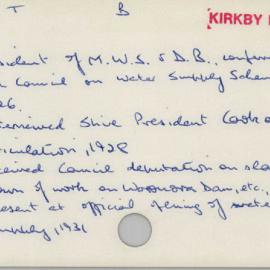 T B
KIRKBY
sident of M.W.S. & D.B., conferr
Council on water Supply Schem
26.
terviewed Shire President Cooke
ticulation, 1928
ceived Council deputation on slow
own of work on Woronora Dam, etc.,
resent at official opening of wate
upply, 1931